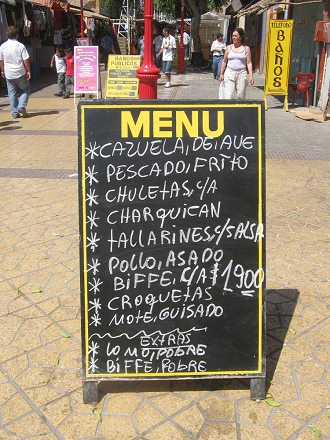 BAÑOS
PUBLICOS
BAÑOS
MENU
* CAZUELA, DE, AVE
* PESCADO, FRITO
* CHULETAS, C/A
* CHARQUICAN
* TALLARINES, C/SALSA
* POLLO, ASADO
* BIFFE, C/A $1,900
* CROQUETAS
* MOTE, GUISADO
EXTRAS
* LO MO, POBRE
* BIFFE, POBRE